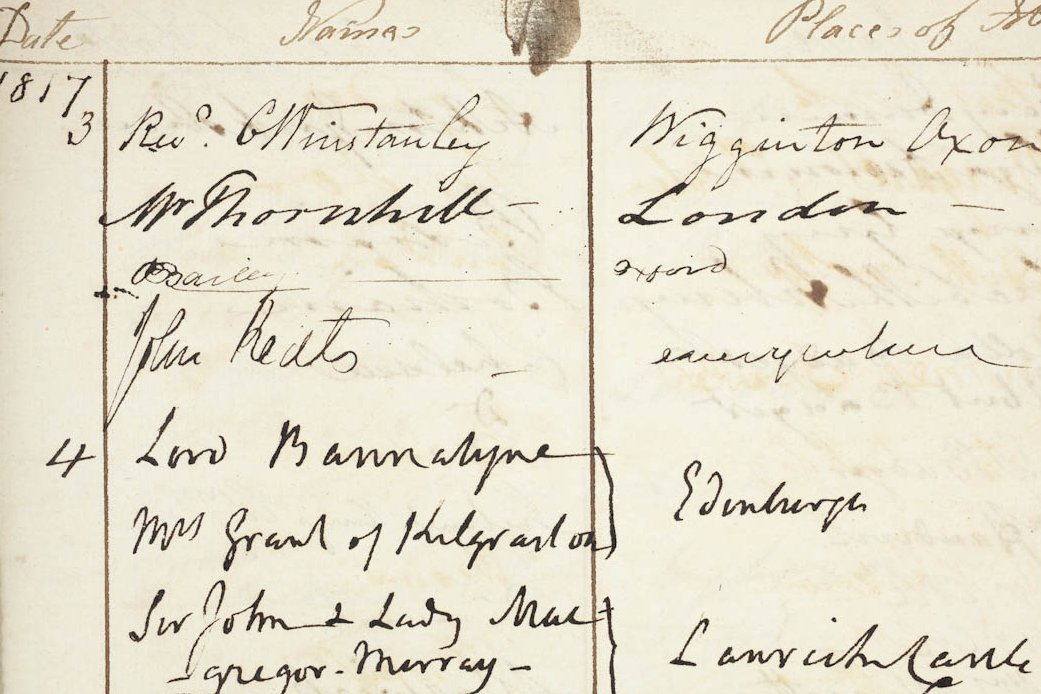 Date Names Places of
1817
3 Revd. C Winstanley Wigginton Oxon
Mr Thornhill — London —
B Bailey Oxford
John Keats – everywhere
4 Lord Bannatyne
Edinburgh
Mrs Grant of Kilgraston
Sir John & Lady Mac
gregor - Murray – Lanrick Castle